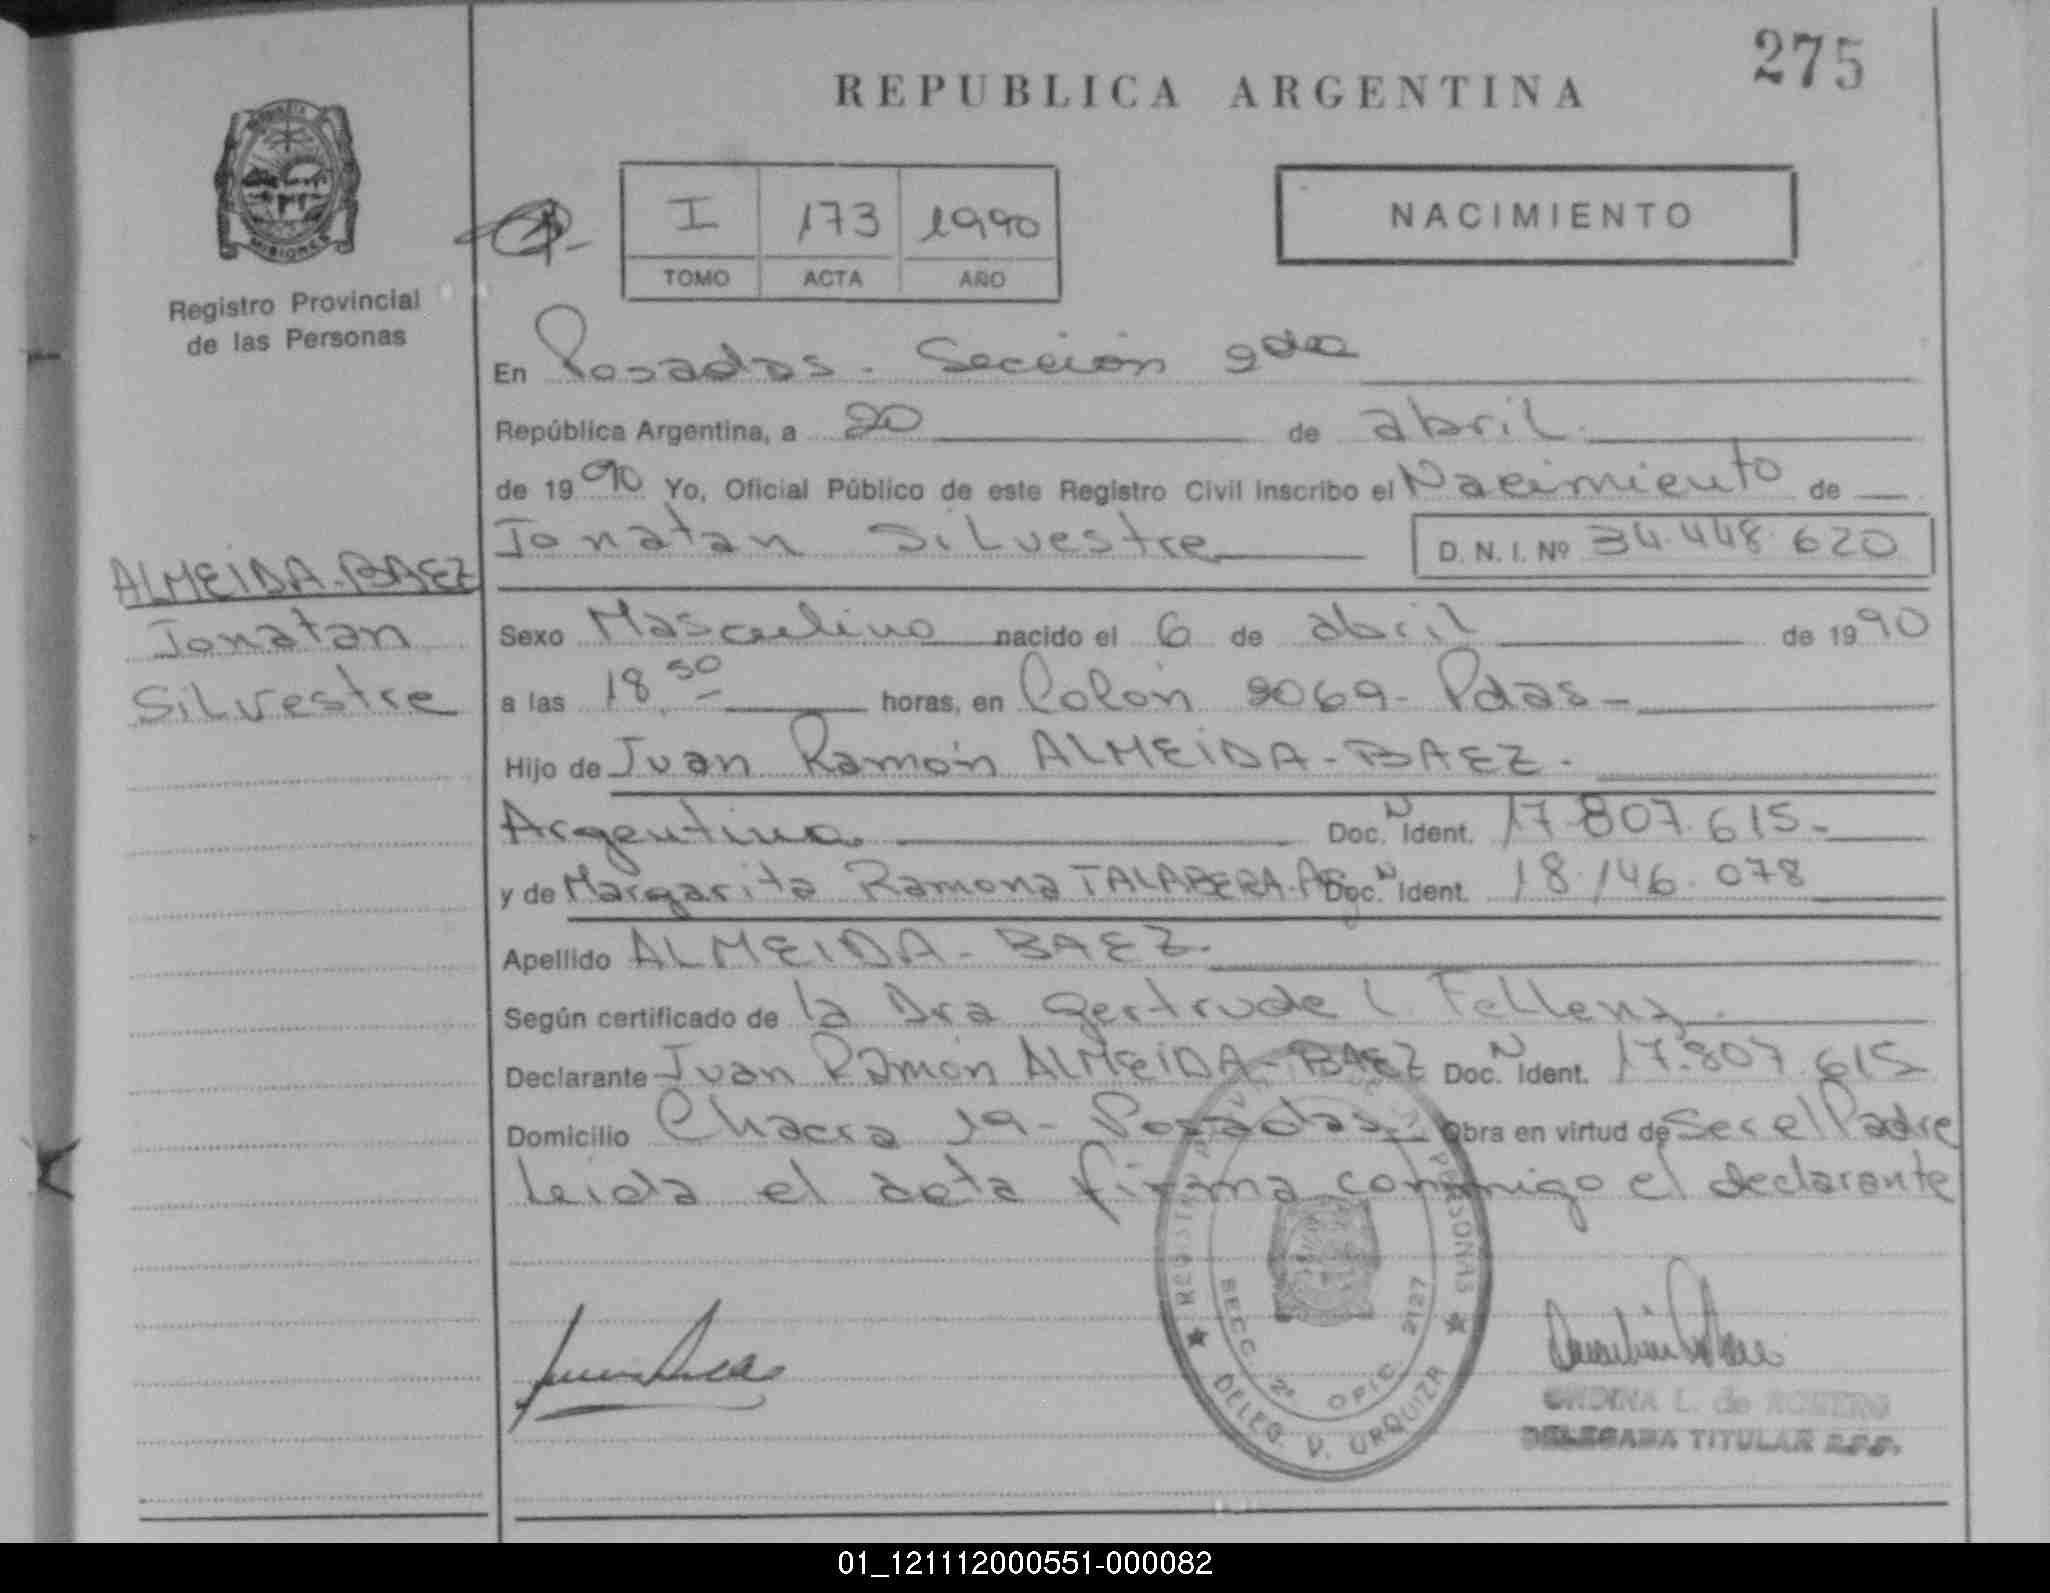 275
REPUBLICA ARGENTINA
MISIONES
Registro Provincial
de las Personas
I 173 1990
TOMO ACTA AÑO
NACIMIENTO
En Posadas - Sección 2da
República Argentina, a 20 de abril
de 1990 Yo, Oficial Público de este Registro Civil inscribo el Nacimiento de
Jonatan Silvestre D. N. I. Nº 34.448.620
ALMEIDA-BAEZ
Jonatan
Silvestre
Sexo Masculino nacido el 6 de abril de 1990
a las 18,50 horas, en Colón 2069- Pdas-
Hijo de Juan Ramón ALMEIDA-BAEZ-
Argentino Doc. N Ident. 17.807.615-
y de Margarita Ramona TALABERA-Arg Doc. N Ident. 18.146.078
Apellido ALMEIDA-BAEZ-
Según certificado de la Dra Gertrude L. Fellenz
Declarante Juan Ramón ALMEIDA-BAEZ Doc. N Ident. 17.807.615
Domicilio Chacra 19- Posadas- Obra en virtud de Ser el Padre
Leida el acta firma conmigo el declarante
REGISTRO PERSONAS
SECC. 2ª OFIC. 2127
DELEG. V. URQUIZA
ONDINA L. de ROMERO
DELEGADA TITULAR R.P.P.
01_121112000551-000082